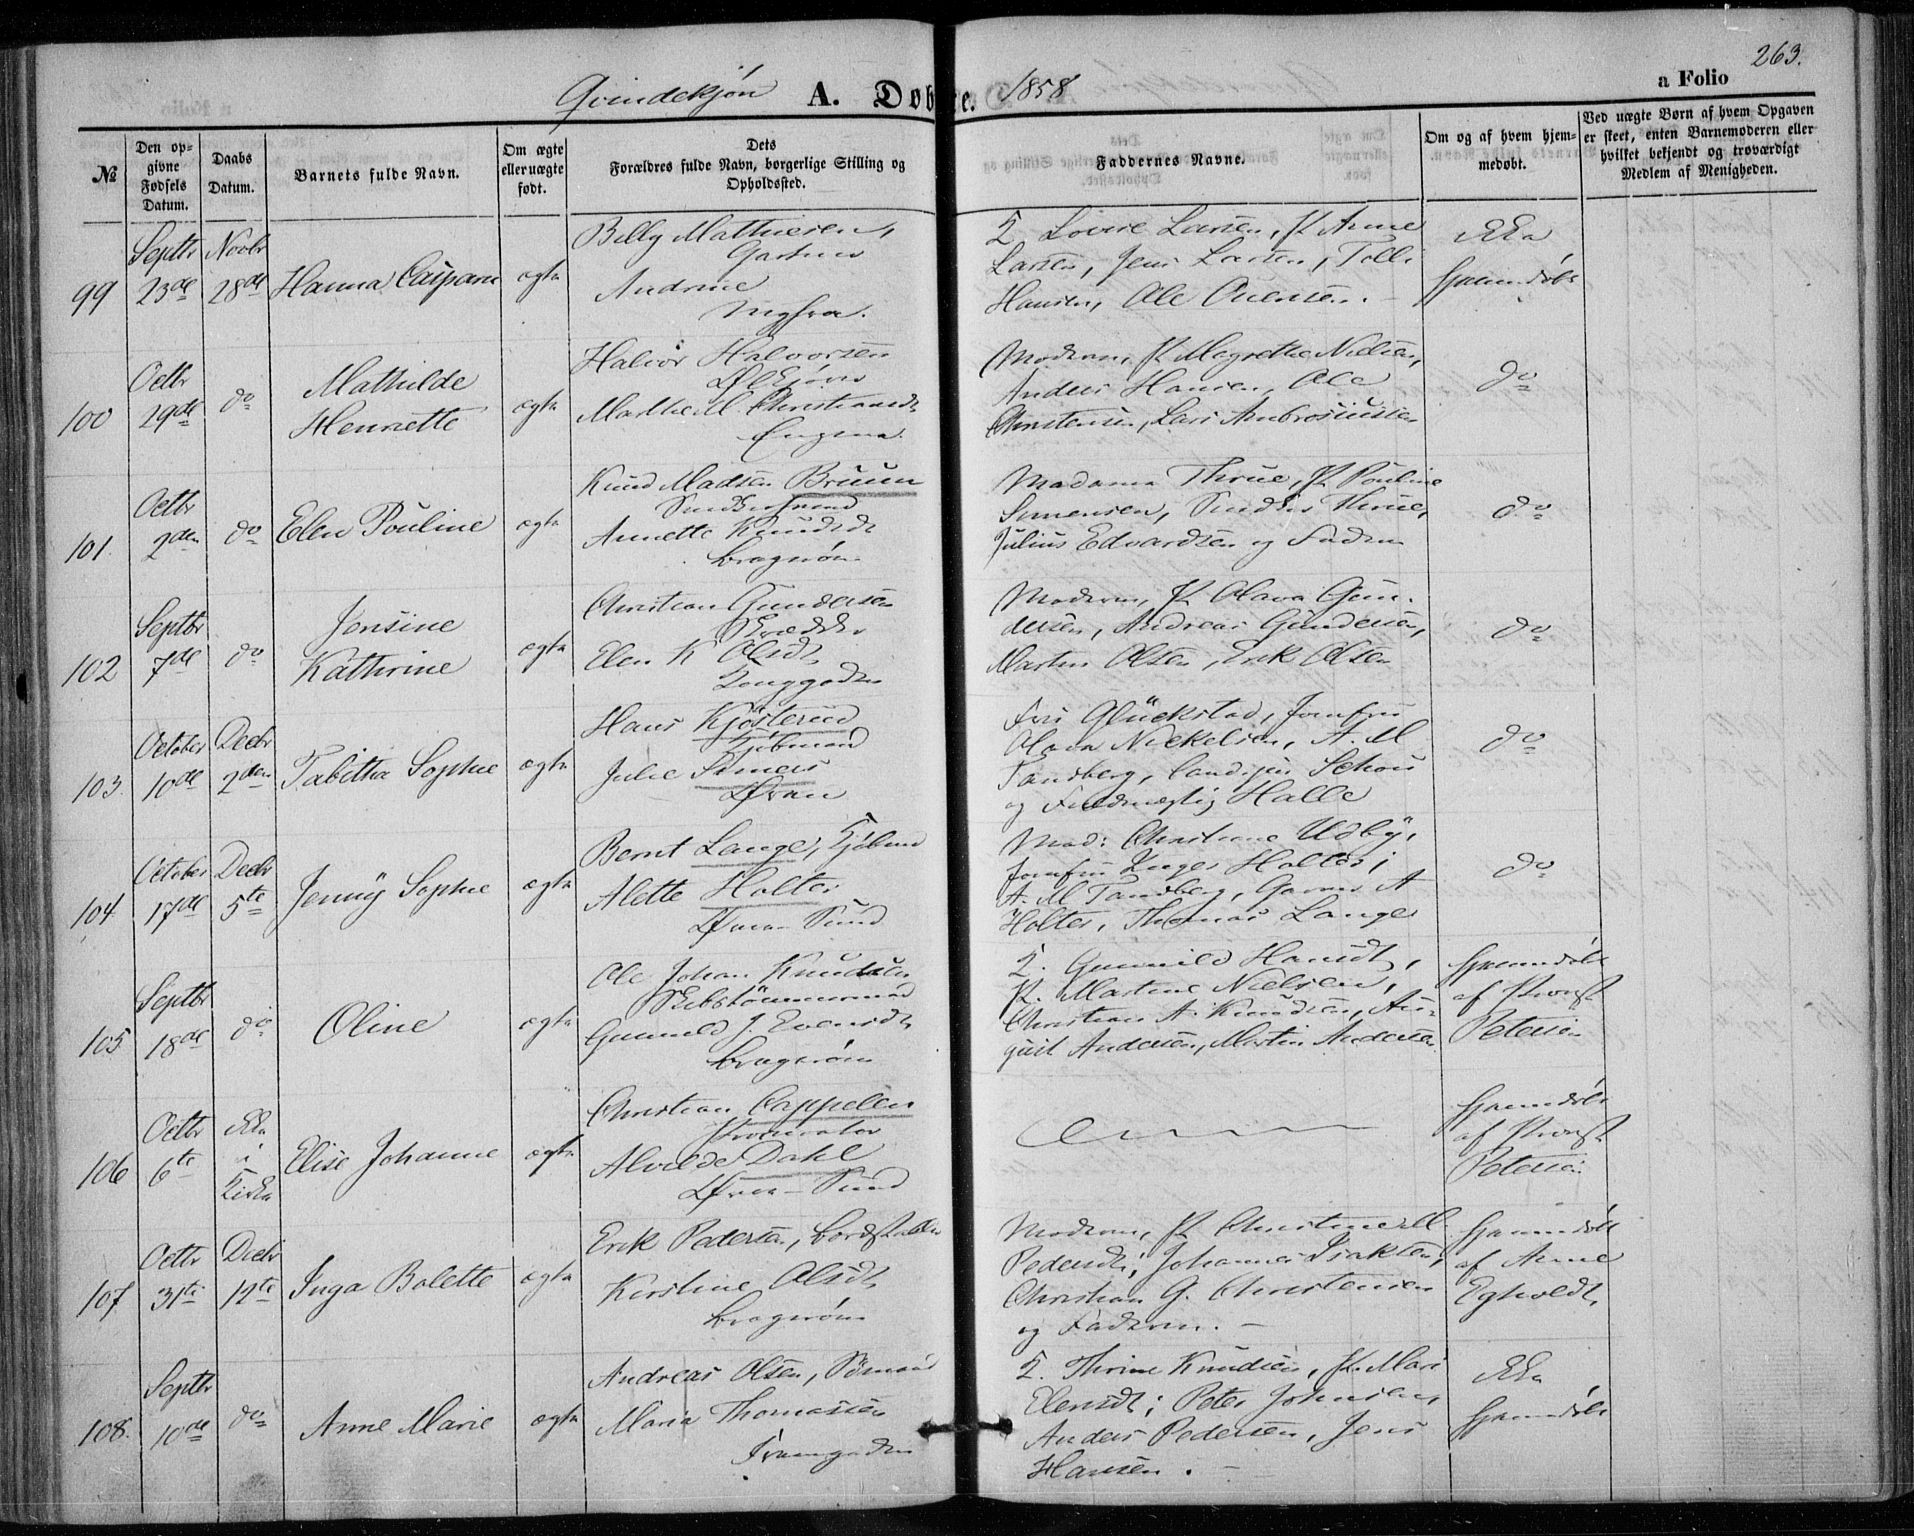 263.
Qvindekjøn A. Døbte. 1858 a Folio
№
Den op-
givne
Fødsels
Datum.
Daabs
Datum.
Barnets fulde Navn.
Om ægte
eller uægte
født.
Dets
Forældres fulde Navn, borgerlige Stilling og
Opholdssted.
Faddernes Navne.
Om og af hvem hjem-
medøbt.
Ved uægte Børn af hvem Opgaven
er skeet, enten Barnemoderen eller
hvilket bekjendt og troværdigt
Medlem af Menigheden.
99
Septbr
23de
Novbr
28de
Hanna
ægte
Billy Mathiesen,
Gartner
Andrine
Larsen, Jens Larsen,
Hansen, Ole
ikke
hjemmedøbt
100
Octbr
19de
do
Mathilde
Henriette
ægte
Halvor Halvorsen
Marthe M. Christiansdt
Engene
Moderen, P. Megrethe Nielsen,
Anders Hansen, Ole
Christensen, Lars Ambrosiussen
do
101.
Octbr
2den
do
Elen Pouline
ægte
Knud Madsen Bruun
Annette Knudsdt
Bragerøen
Madame Thrue, P. Pouline
Simensen, Thrue,
Julius Edvardsen og Faderen
do
102
Septbr
7de
do
Jensine
Kathrine
ægte
Christian Gundersen
Skrædder
Elen K Olsdt
Tomggaden
Moderen, P. Olava Gun-
dersen, Andreas Gundersen,
Martin Olsen, Erik Olsen
do
103.
October
10de
Decbr
2den
Tabitha Sophie
ægte
Hans Kjøsterud
Kjøbmand
Julie Smers
Øvren
Fru Glückstad, Jomfru
Olava Nickelsen, A. M
Tandberg, Schou
og Fuldmægtig Halle
do
104.
October
17de
Decbr
5te
Jenny Sophie
ægte
Bernt Lange, Kjøbmd
Alette Holter
Øvre-Sund
Mad: Christiane Udby,
Jomfru Inger Holter;
A. M Tandberg, A
Holter, Thomas Lange
do
105
Septbr
18de
do
Oline
ægte
Ole Johan Knudsen
Skibstømmermand
Gunnild J. Evensdt
Bragerøen
Q. Gunnild Hansdt,
P. Martine Nielsen,
Christian A. Knudsen, Au-
gust Andersen, Martin Andersen
hjemmedøbt
af Provst
Petersen
106
Octbr
6te
ikke
i
Kirke
Elise Johanne
ægte
Christian Cappelen
Procurator
Alvilde Dahl
Øvre-Sund
hjemmedøbt
af Provst
Petersen
107
Octbr
31te
Decbr
12te
Inga Bolette
ægte
Erik Pedersen,
Kirstine Olsdt
Bragerøen
Moderen, P. Christine M.
Pedersdt; Johannes Isaksen,
Christian G. Christensen
og Faderen. —
hjemmedøbt
af Anne
Egholdt,
108.
Septbr
10de
do
Anne Marie
ægte
Andreas Olsen, Sømand
Maria Thomassen
Tromgaden
Q. Thrine Knudsen, P. Mari
Elensdt; Peter Johnsen,
Anders Pedersen, Jens
Hansen. —
ikke
hjemmedøbt